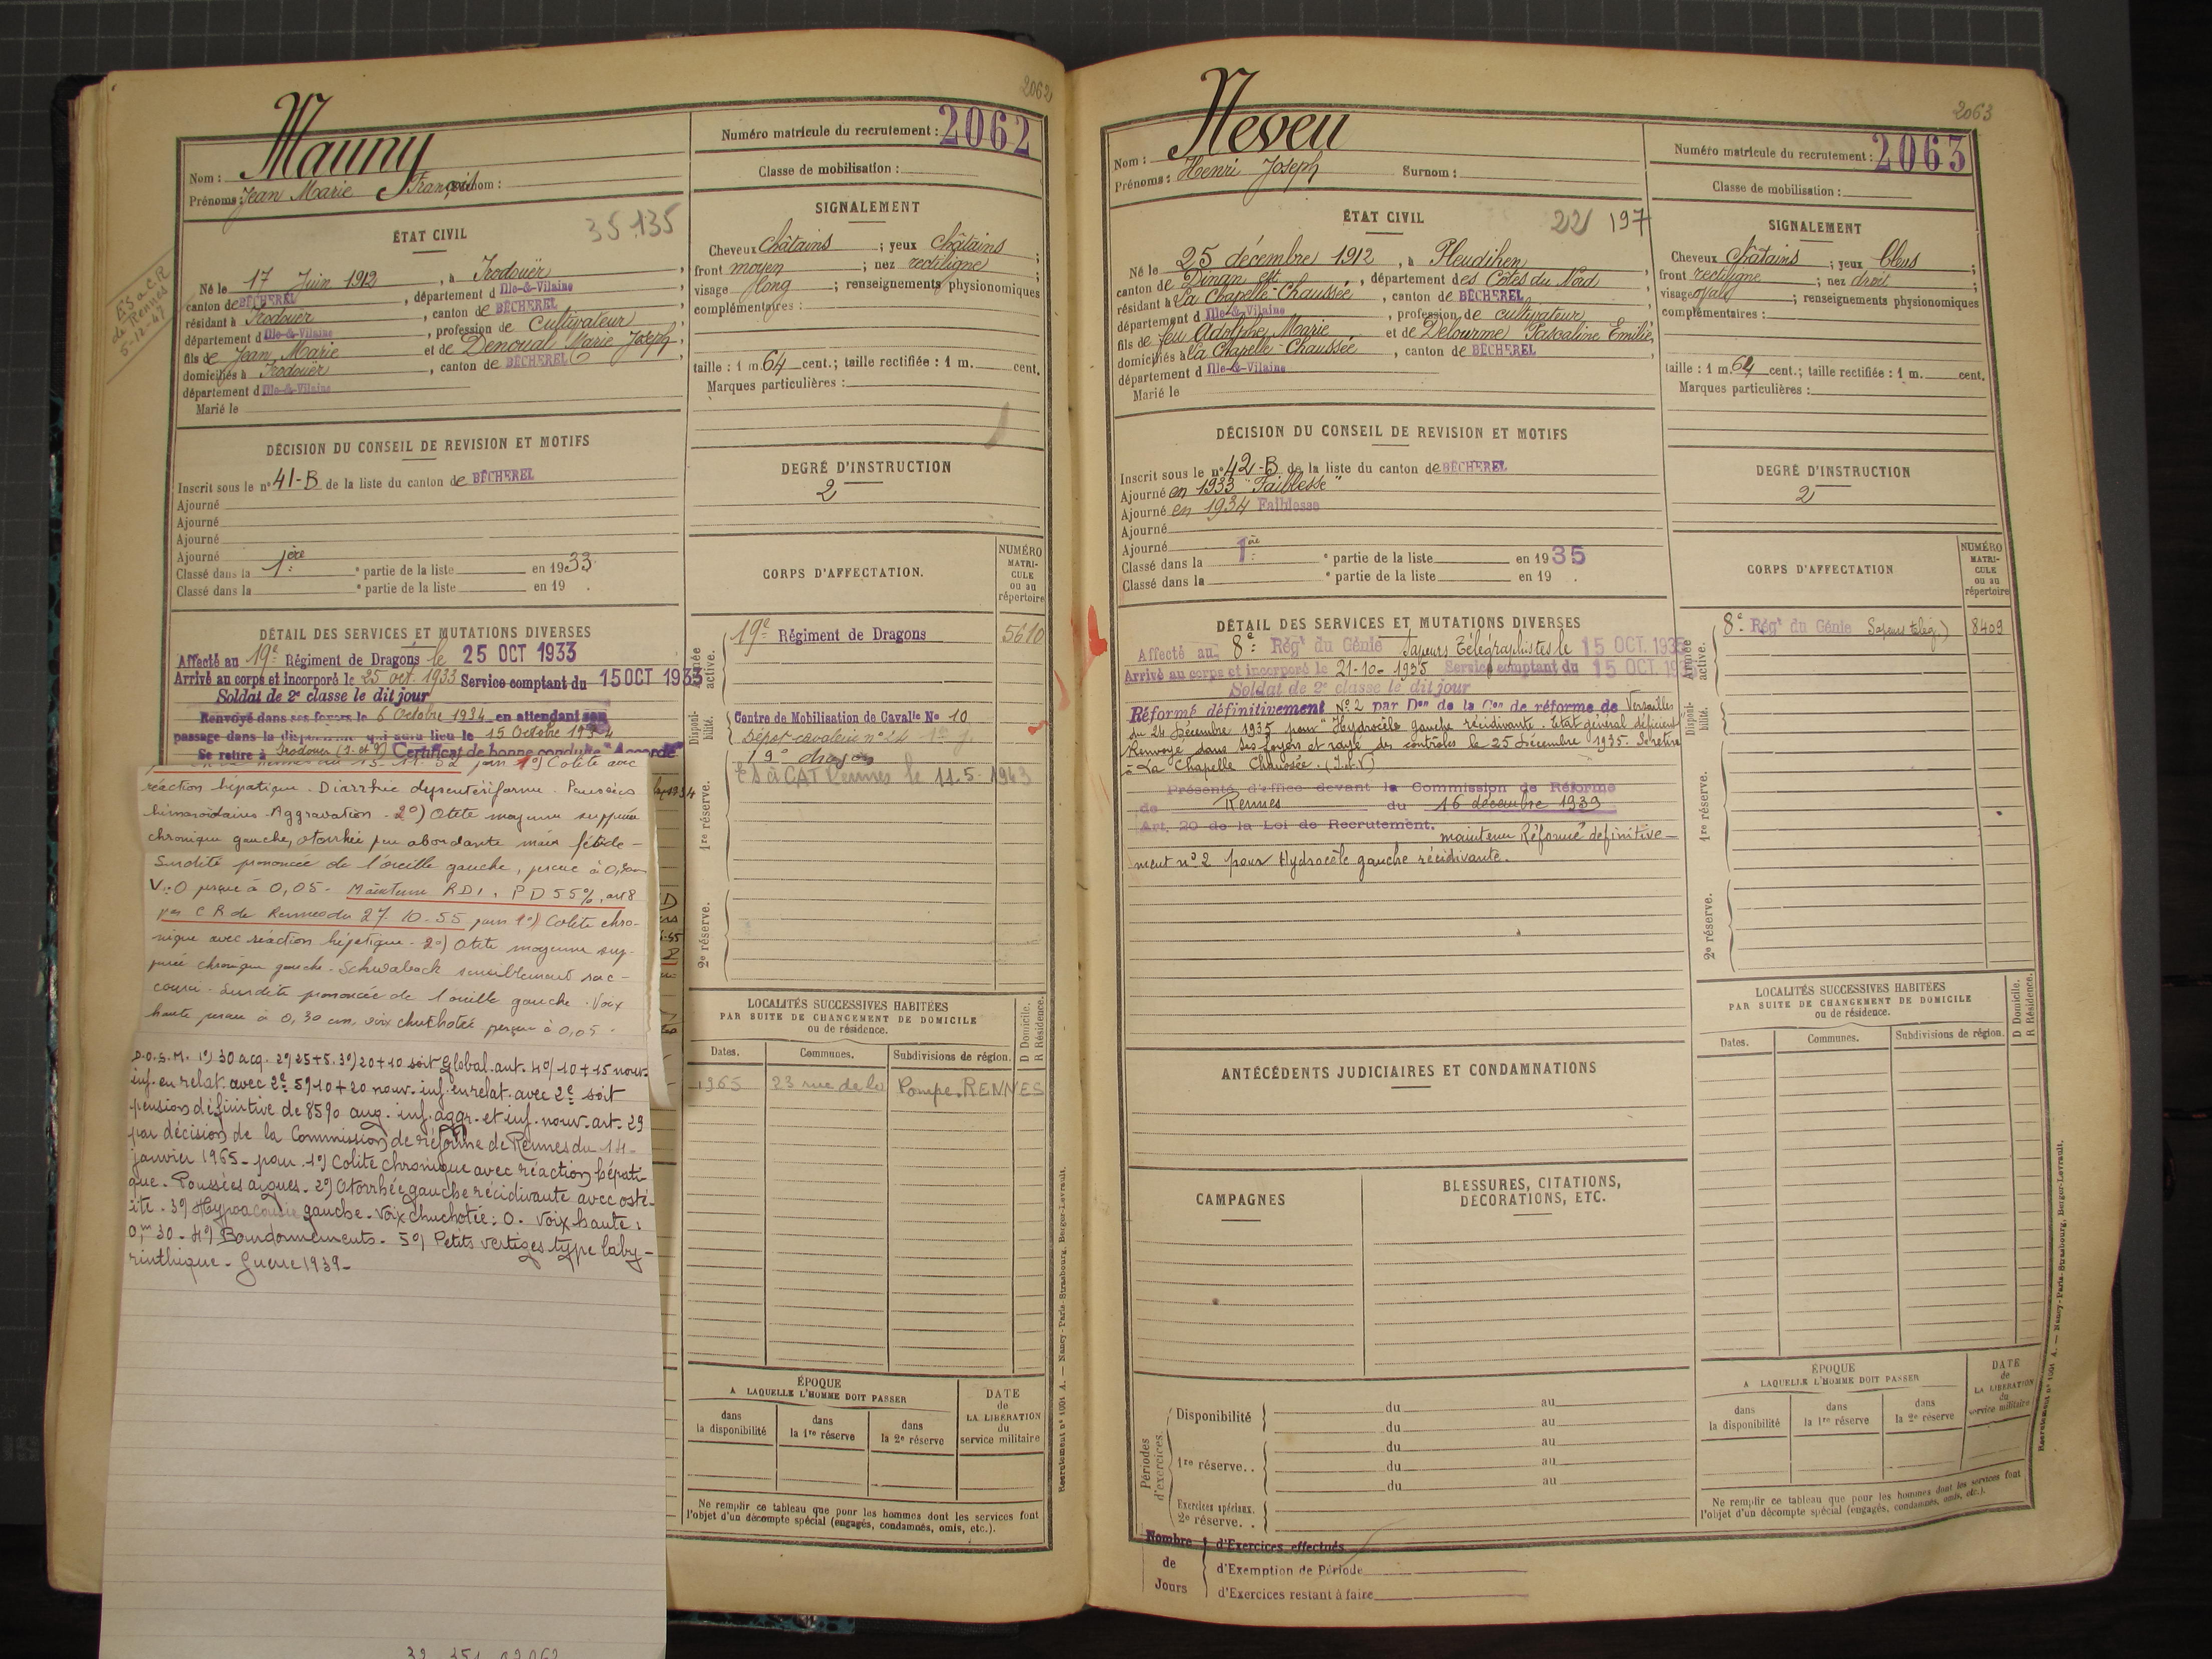 2062
Nom : Mauny
Prénoms : Jean Marie François Surnom :
Numéro matricule du recrutement : 2062
Classe de mobilisation :
ÉTAT CIVIL
35.135
ES à C.R
de Rennes
5-12-47
Né le 17 Juin 1912, à Irodouër,
canton de BÉCHEREL, département d Ille-&-Vilaine
résidant à Irodouër, canton de BÉCHEREL
département d Ille-&-Vilaine, profession de Cultivateur
fils de Jean Marie et de Denoual Marie Joseph,
domiciliés à Irodouër, canton de BÉCHEREL,
département d Ille-&-Vilaine
Marié le
SIGNALEMENT
Cheveux châtains ; yeux châtains ;
front moyen ; nez rectiligne ;
visage long ; renseignements physionomiques
complémentaires :
taille : 1 m. 64 cent.; taille rectifiée : 1 m. cent.
Marques particulières :
DÉCISION DU CONSEIL DE REVISION ET MOTIFS
Inscrit sous le n° 41-B de la liste du canton de BÉCHEREL
Ajourné
Ajourné
Ajourné
Ajourné
Classé dans la 1ère partie de la liste en 1933
Classé dans la partie de la liste en 19 .
DEGRÉ D'INSTRUCTION
2
CORPS D'AFFECTATION.
NUMÉRO
MATRI-
CULE
ou au
répertoire
DÉTAIL DES SERVICES ET MUTATIONS DIVERSES
Affecté au 19e Régiment de Dragons le 25 OCT 1933
Arrivé au corps et incorporé le 25 oct. 1933 Service comptant du 15 OCT 1933
Soldat de 2e classe le dit jour
Renvoyé dans ses foyers le 6 Octobre 1934 en attendant son
passage dans la disponibilité qui aura lieu le 15 Octobre 1934
Se retire à Irodouër (I. et V) Certificat de bonne conduite "Accordé"
1°) Colite avec
réaction hépatique. Diarrhée dysentériforme. Poussées
hémorroïdaires. Aggravation. 2°) Otite moyenne suppurée
chronique gauche, otorrhée peu abondante mais fétide -
Surdité prononcée de l'oreille gauche, perçue à
V=0 perçue à 0,05. Maintenu RD1, PD 55%, art 8
par C R de Rennes du 27-10-55 pour 1°) Colite chro-
nique avec réaction hépatique. 2°) Otite moyenne sup-
purée chronique gauche. Schwabach sensiblement rac-
courci. Surdité prononcée de l'oreille gauche. Voix
haute perçue à 0,30 cm, voix chuchotée perçue à 0,05.
D.O.S.M. 1°) 30 acq. 2°) 25+5. 3°) 20+10 soit Global. aut. 4°) 10+15 nouv.
inf. en relat. avec 2e 5°) 10+20 nouv. inf. en relat. avec 2e soit
pension définitive de 85% aug. inf. aggr. et inf. nouv. art. 29
par décision de la Commission de réforme de Rennes du 14
janvier 1965 - pour 1°) Colite chronique avec réaction hépati-
que. Poussées aigues. 2°) Otorrhée gauche récidivante avec osté-
ite. 3°) Hypoacousie gauche. Voix chuchotée : 0. Voix haute :
0,m 30 - 4°) Bourdonnements. 5°) Petits vertiges type laby-
rinthique - Guerre 1939 -
Armée active.
19e Régiment de Dragons 5610
Disponibilité.
Centre de Mobilisation de Cavalie No 10
Dépôt cavalerie n° 24 1er j.
19e dragon
ES à CAT Rennes le 11-5-1943
1re réserve.
2e réserve.
LOCALITÉS SUCCESSIVES HABITÉES
PAR SUITE DE CHANGEMENT DE DOMICILE
ou de résidence.
D Domicile.
R Résidence.
Dates. Communes. Subdivisions de région.
1965 23 rue de la Pompe. RENNES
ÉPOQUE
A LAQUELLE L'HOMME DOIT PASSER
dans la disponibilité
dans la 1re réserve
dans la 2e réserve
DATE
de
LA LIBÉRATION
du
service militaire
Ne remplir ce tableau que pour les hommes dont les services font
l'objet d'un décompte spécial (engagés, condamnés, omis, etc.).
Recrutement n° 1001 A. — Nancy-Paris-Strasbourg, Berger-Levrault.
2063
Nom : Neveu
Prénoms : Henri Joseph Surnom :
Numéro matricule du recrutement : 2063
Classe de mobilisation :
ÉTAT CIVIL
22 197
Né le 25 décembre 1912, à Pleudihen
canton de Dinan est, département des Côtes du Nord
résidant à La Chapelle-Chaussée, canton de BÉCHEREL
département d Ille-&-Vilaine, profession de cultivateur
fils de feu Adolphe Marie et de Delourme Pascaline Emilie,
domiciliés à La Chapelle-Chaussée, canton de BÉCHEREL,
département d Ille-&-Vilaine
Marié le
SIGNALEMENT
Cheveux châtains ; yeux bleus ;
front rectiligne ; nez droit ;
visage ovale ; renseignements physionomiques
complémentaires :
taille : 1 m. 64 cent.; taille rectifiée : 1 m. cent.
Marques particulières :
DÉCISION DU CONSEIL DE REVISION ET MOTIFS
Inscrit sous le n° 42-B de la liste du canton de BÉCHEREL
Ajourné en 1933 "Faiblesse"
Ajourné en 1934 Faiblesse
Ajourné
Ajourné
Classé dans la 1ère partie de la liste en 1935
Classé dans la partie de la liste en 19 .
DEGRÉ D'INSTRUCTION
2
CORPS D'AFFECTATION
NUMÉRO
MATRI-
CULE
ou au
répertoire
DÉTAIL DES SERVICES ET MUTATIONS DIVERSES
Affecté au 8e Régt du Génie Sapeurs Télégraphistes le 15 OCT. 1935
Arrivé au corps et incorporé le 21-10-1935 Service comptant du 15 OCT. 1935
Soldat de 2e classe le dit jour
Réformé définitivement N° 2 par Don de la Con de réforme de Versailles
du 24 Décembre 1935 pour "Hydrocèle gauche récidivante. Etat général déficient"
Renvoyé dans ses foyers et rayé des contrôles le 25 Décembre 1935. Se retire
à La Chapelle Chaussée. (I.et.V)
Présenté d'office devant la Commission de Réforme
de Rennes du 16 décembre 1939
Art. 20 de la Loi de Recrutement. maintenu Réformé définitive-
ment n° 2 pour Hydrocèle gauche récidivante.
Armée active.
8e Régt du Génie Sapeurs télég.) 8409
Disponibilité.
1re réserve.
2e réserve.
LOCALITÉS SUCCESSIVES HABITÉES
PAR SUITE DE CHANGEMENT DE DOMICILE
ou de résidence.
D Domicile.
R Résidence.
Dates. Communes. Subdivisions de région.
ANTÉCÉDENTS JUDICIAIRES ET CONDAMNATIONS
CAMPAGNES
BLESSURES, CITATIONS,
DÉCORATIONS, ETC.
Périodes d'exercices.
Disponibilité du au
du au
1re réserve.. du au
du au
du au
Exercices spéciaux.
2e réserve. .
Nombre de Jours
d'Exercices effectués
d'Exemption de Période
d'Exercices restant à faire
ÉPOQUE
A LAQUELLE L'HOMME DOIT PASSER
dans la disponibilité
dans la 1re réserve
dans la 2e réserve
DATE
de
LA LIBÉRATION
du
service militaire
Ne remplir ce tableau que pour les hommes dont les services font
l'objet d'un décompte spécial (engagés, condamnés, omis, etc.).
Recrutement n° 1001 A. — Nancy-Paris-Strasbourg, Berger-Levrault.